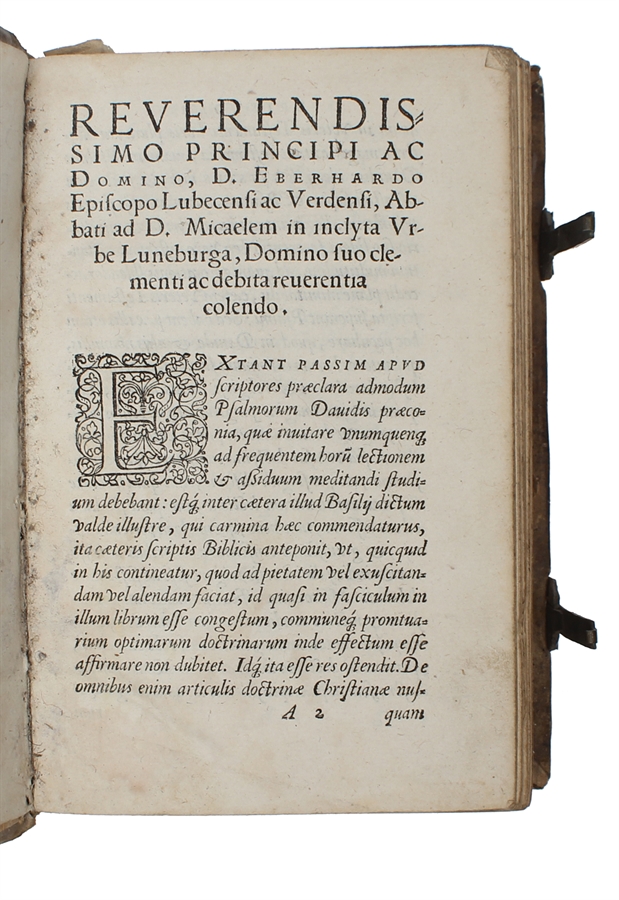 REVERENDIS⸗
SIMO PRINCIPI AC
DOMINO, D. EBERHARDO
Epiſcopo Lubecenſi ac Verdenſi, Ab-
bati ad D. Micaelem in inclyta Vr-
be Luneburga, Domino ſuo cle-
menti ac debita reuerentia
colendo.
EXTANT PASSIM APVD
ſcriptores præclara admodum
Pſalmorum Dauidis præco⸗
nia, quæ inuitare vnumquenq́;
ad frequentem horũ lectionem
& aſſiduum meditandi ſtudi⸗
um debebant: eſtq́; inter cætera illud Baſilij dictum
valde illuſtre, qui carmina hæc commendaturus,
ita cæteris ſcriptis Biblicis anteponit, vt, quicquid
in his contineatur, quod ad pietatem vel exuſcitan⸗
dam vel alendam faciat, id quaſi in faſciculum in
illum librum eſſe congeſtum, communeq́; promtua⸗
rium optimarum doctrinarum inde effectum eſſe
affirmare non dubitet. Idq́; ita eſſe res oſtendit. De
omnibus enim articulis doctrinæ Chriſtianæ nuſ⸗
A 2 quam